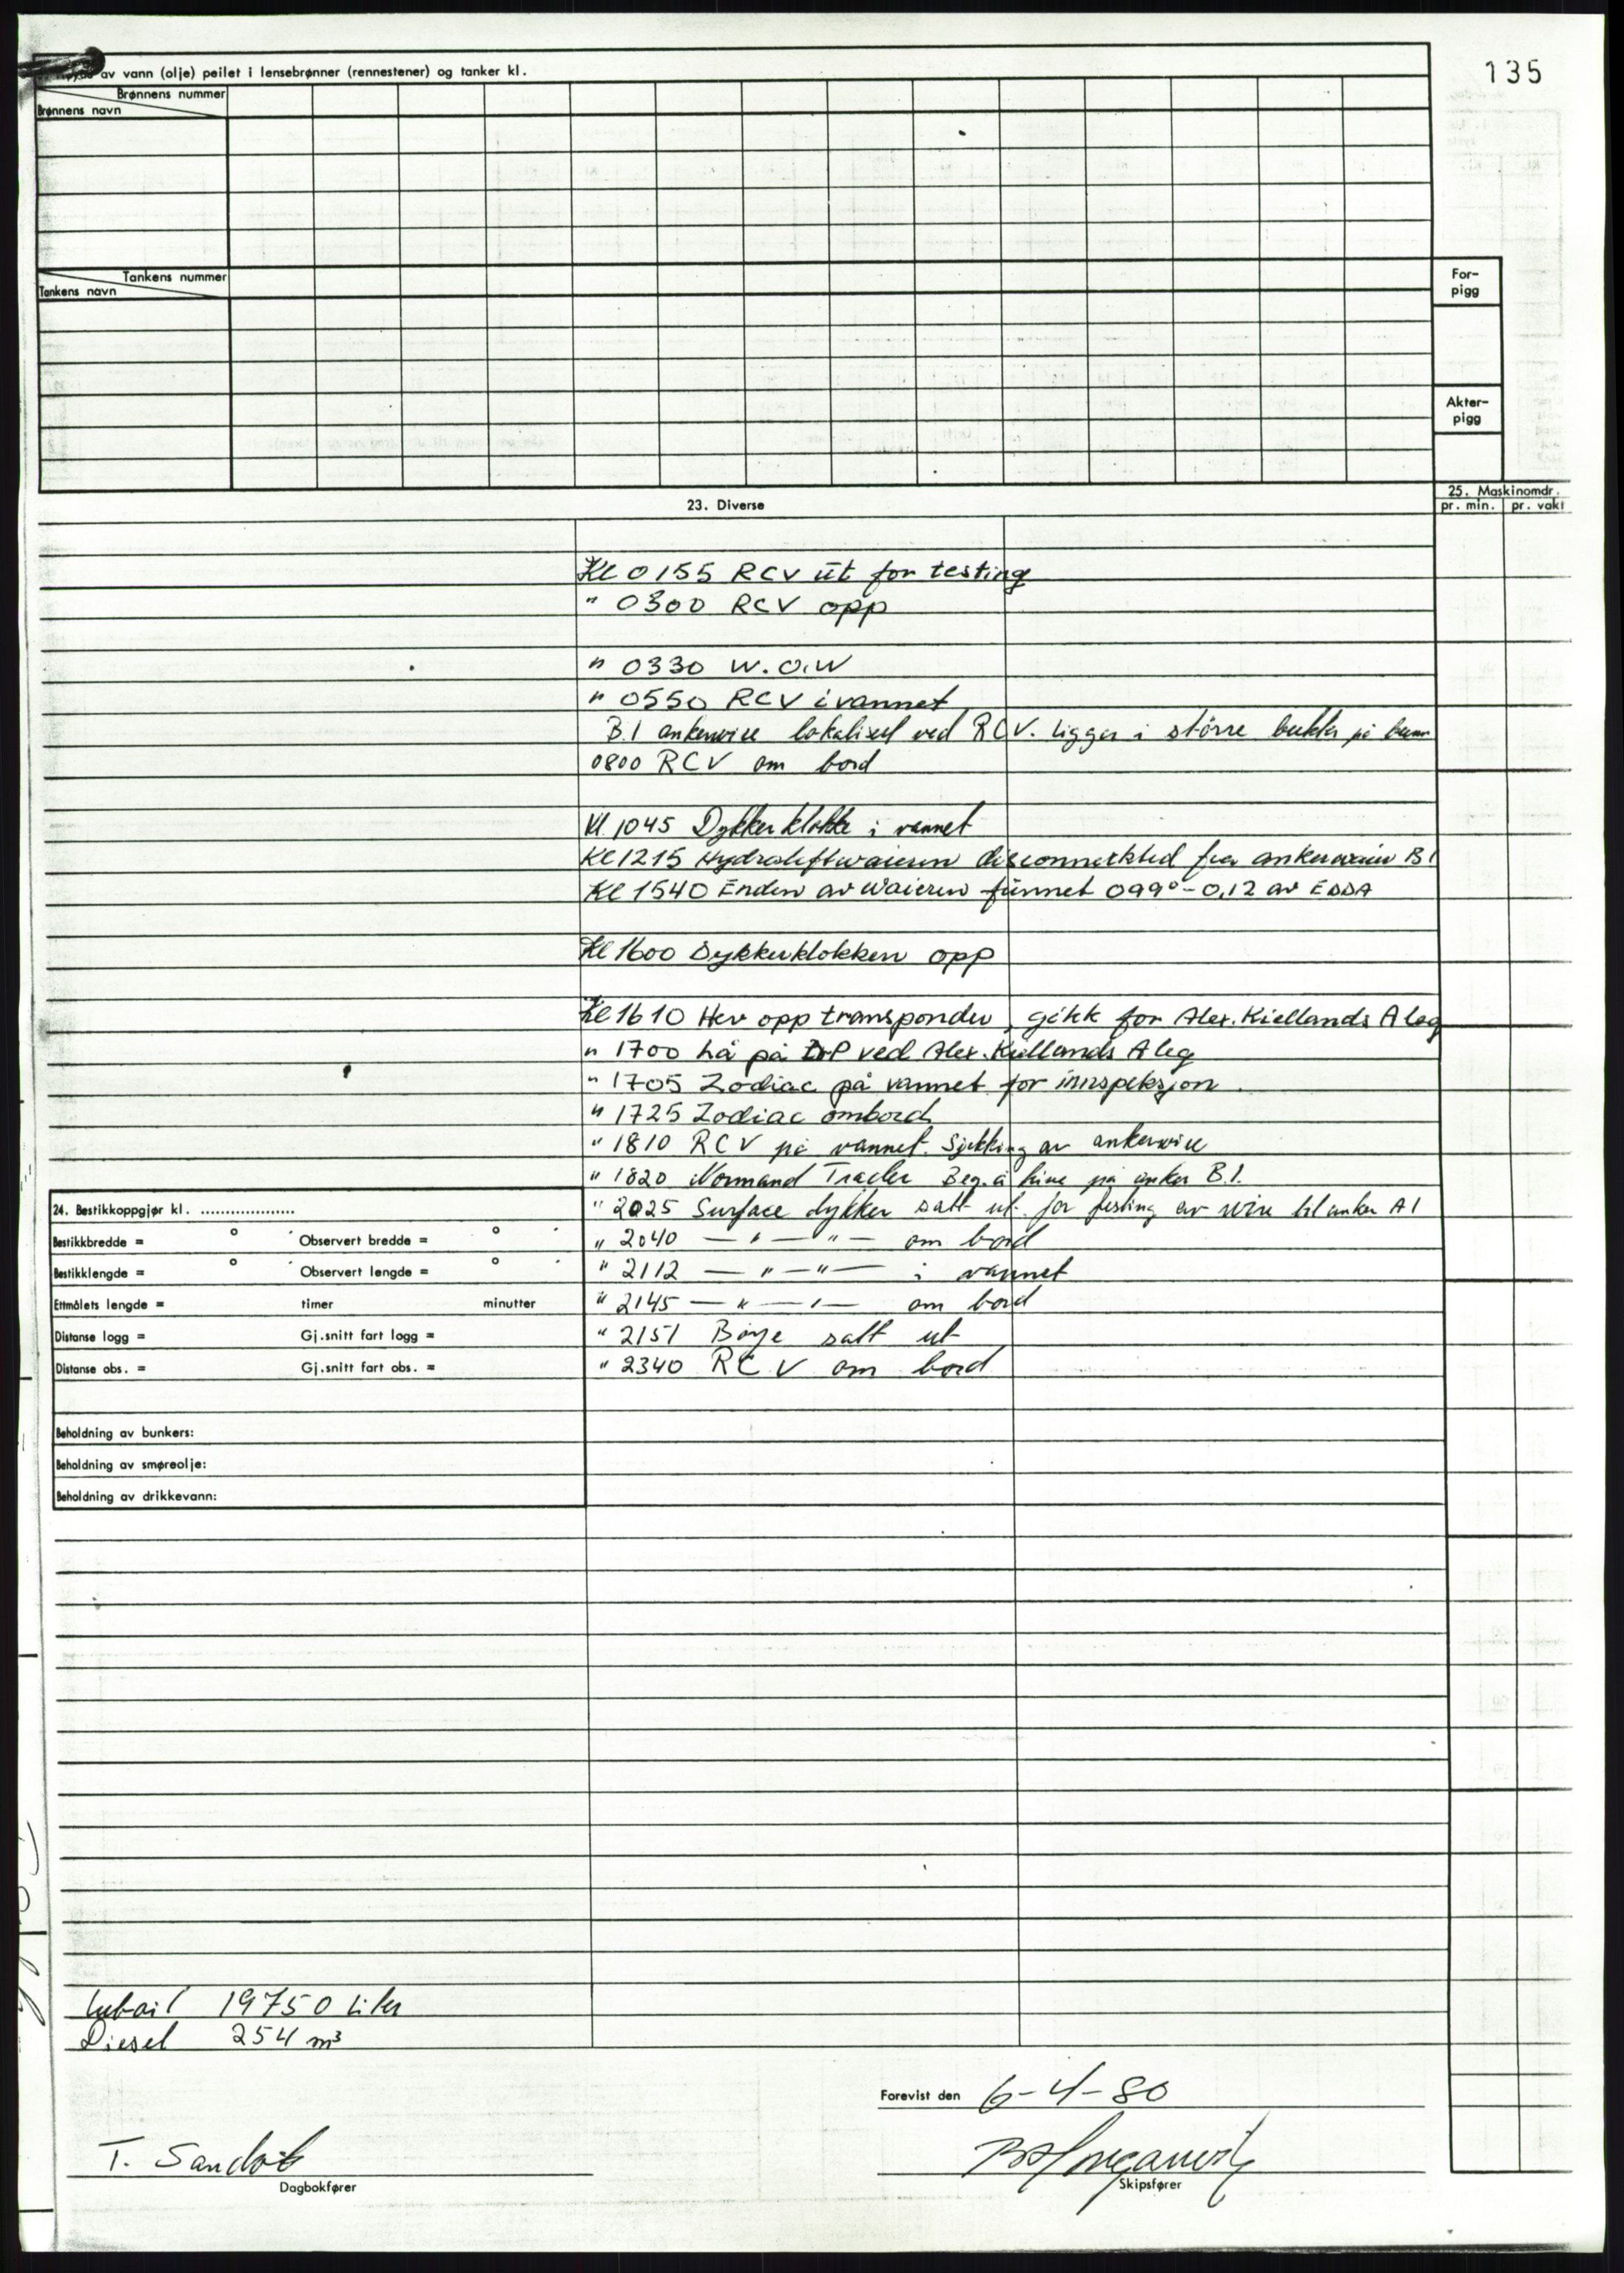 135
av vann (olje) peilet i lensebrønner (rennestener) og tanker kl.
Brønnens nummer
Brønnens navn
Tankens nummer
Tankens navn
For-
pigg
Akter-
pigg
23. Diverse
25. Maskinomdr.
pr. min. pr. vakt
Kl 0155 RCV ut for testing
" 0300 RCV opp
" 0330 W.O.W
" 0550 RCV i vannet
B.1 ankerwire lokalisert ved RCV. Ligger i större bukter på bunn
0800 RCV om bord
Kl. 1045 Dykkerklokke i vannet
Kl 1215 Hydroliftwaieren disconneckted fra ankerwaier B1
Kl 1540 Enden av waieren funnet 099° - 0,12 av EDDA
Kl 1600 Dykkerklokken opp
Kl 1610 Hev opp transponder, gikk for Alex. Kiellands A leg
" 1700 Lå på DP ved Alex. Kiellands A leg
" 1705 Zodiac på vannet for innspeksjon.
" 1725 Zodiac ombord
" 1810 RCV på vannet. Sjekking av ankerwire
" 1820 Normand Trader Beg. å hive på anker B.1.
" 2025 Surface dykker satt ut for festing av wire til anker A1
" 2040 — " — " — om bord
" 2112 — " — " — i vannet
" 2145 — " — " — om bord
" 2151 Bøye satt ut
" 2340 RCV om bord
24. Bestikkoppgjør kl. ...................
Bestikkbredde = ° ' Observert bredde = ° '
Bestikklengde = ° ' Observert lengde = ° '
Ettmålets lengde = timer minutter
Distanse logg = Gj.snitt fart logg =
Distanse obs. = Gj.snitt fart obs. =
Beholdning av bunkers:
Beholdning av smøreolje:
Beholdning av drikkevann:
Luboil 19750 Liter
Diesel 254 m³
Forevist den 6-4-80
T. Sandvik
Dagbokfører
Skipsfører